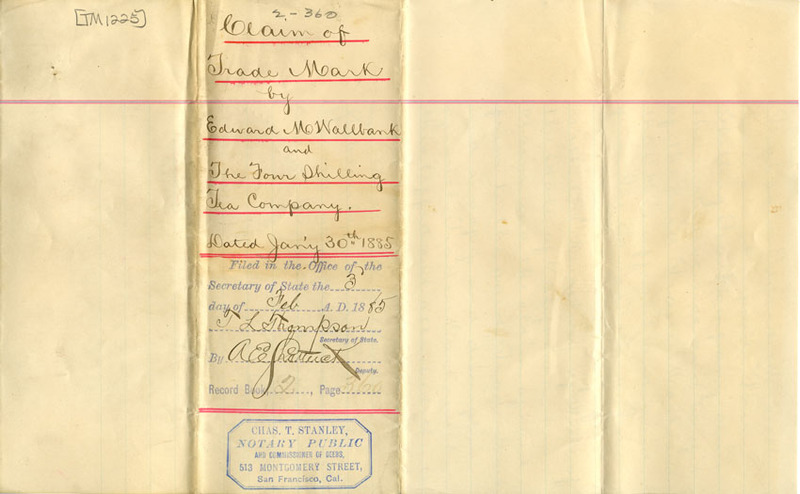 [TM1225]
2-360
Claim of
Trade Mark
by
Edward M Wallbank
and
The Four Shilling
Tea Company.
Dated Jan'y 30th 1885
Filed in the Office of the
Secretary of State the 3
day of Feb A. D. 1885
T L Thompson
Secretary of State.
By A E
Deputy.
Record Book, 2, Page 360
CHAS. T. STANLEY,
NOTARY PUBLIC
AND COMMISSIONER OF DEEDS,
513 MONTGOMERY STREET,
San Francisco, Cal.